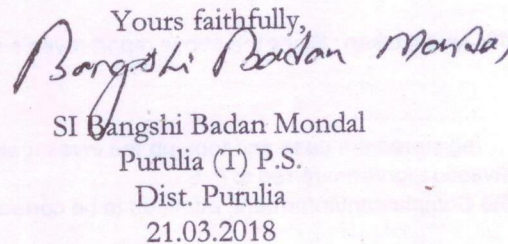 Yours faithfully,
Bangshi Badan Mondal
SI Bangshi Badan Mondal
Purulia (T) P.S.
Dist. Purulia
21.03.2018